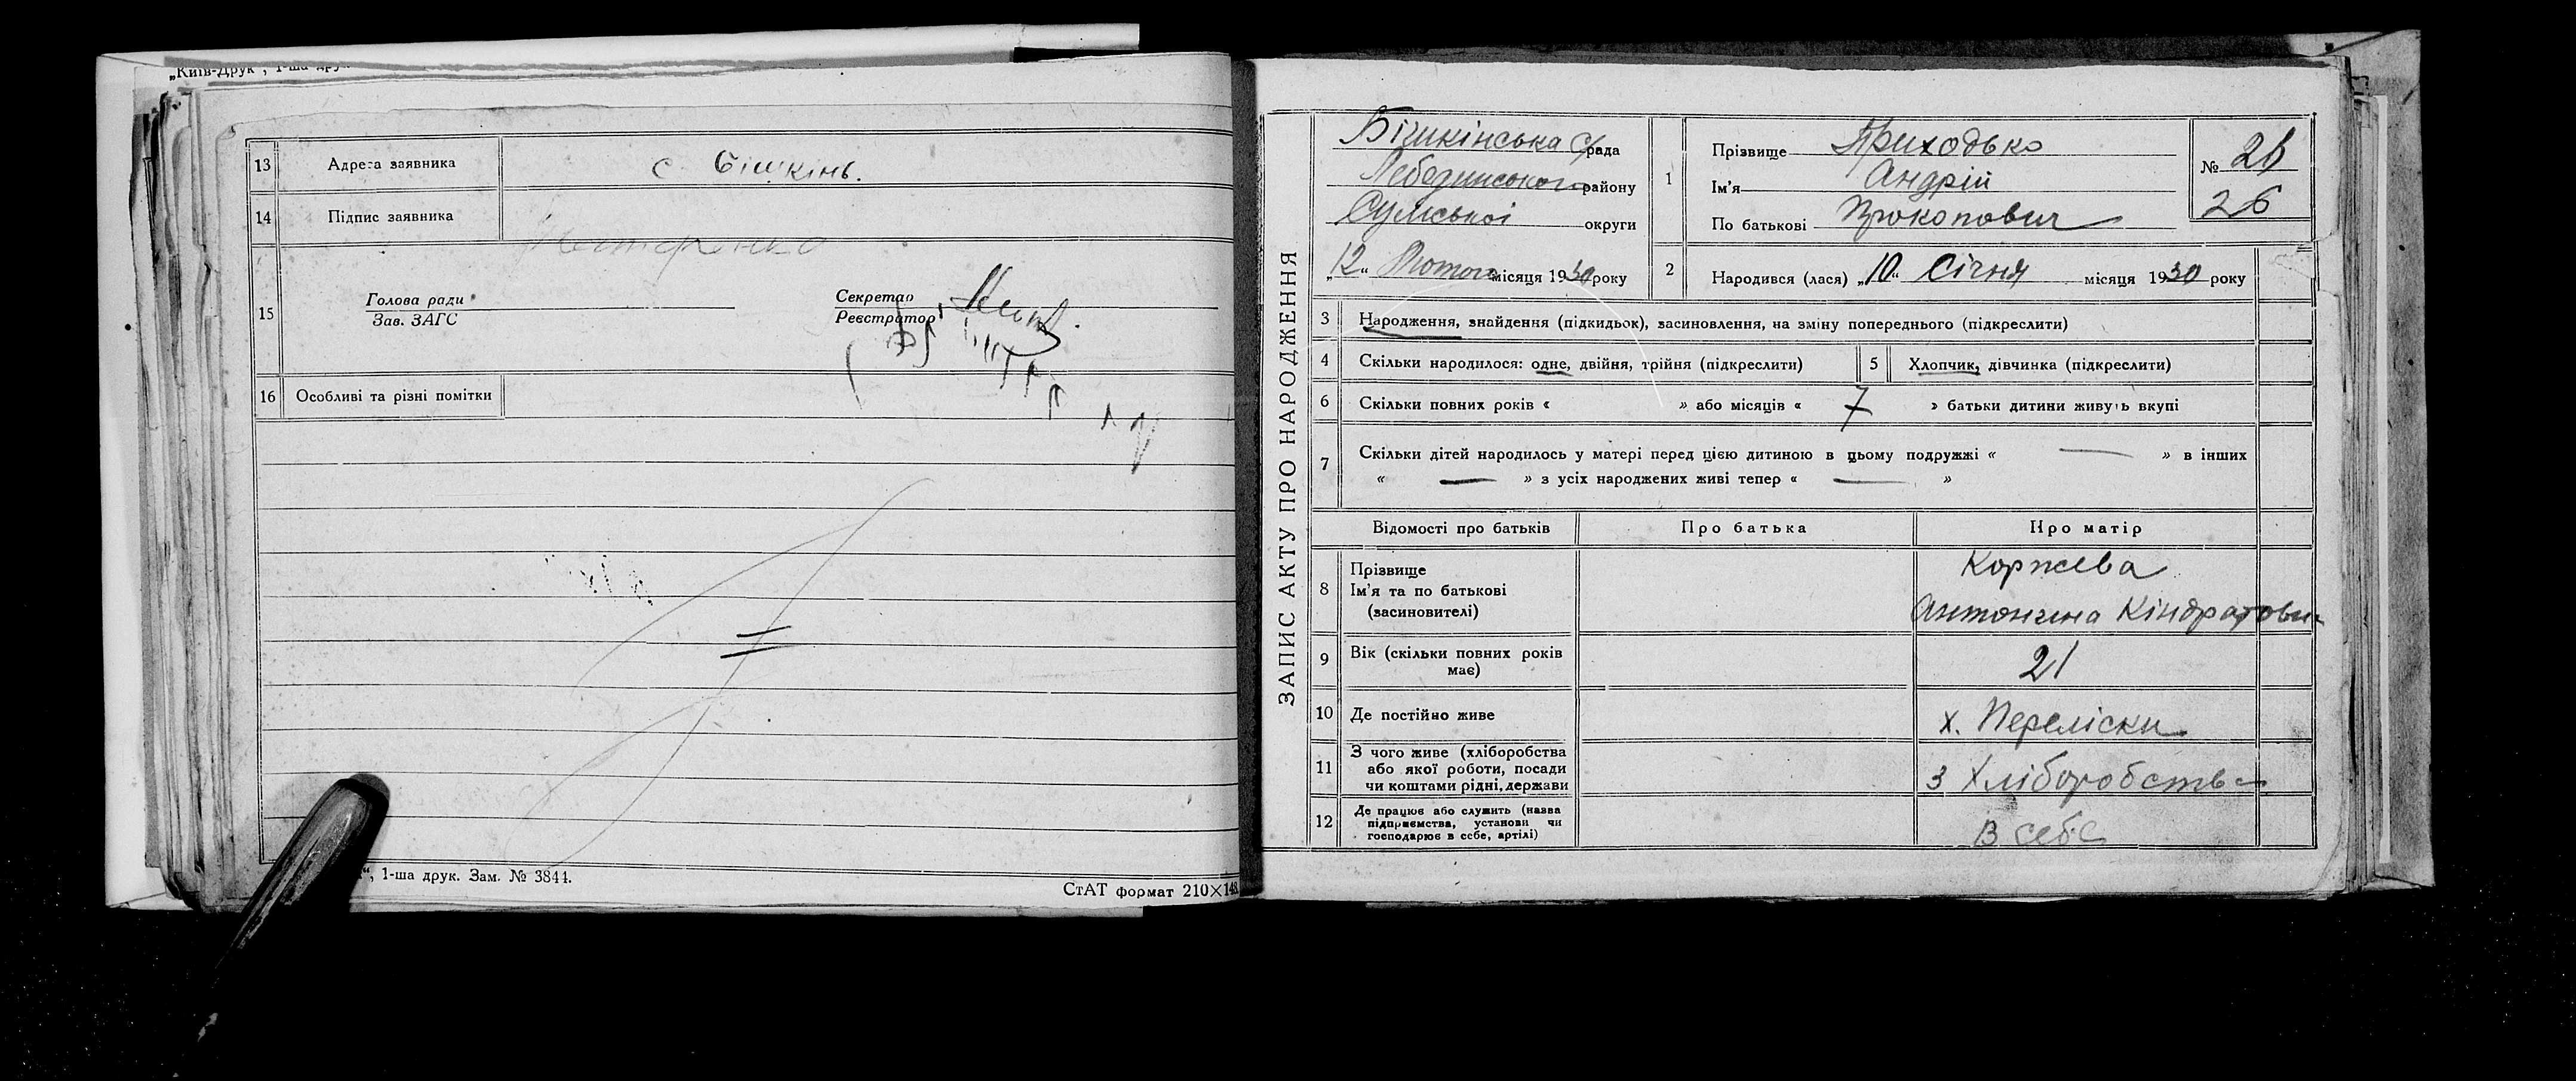 13 Адреса заявника с. Бішкінь.
14 Підпис заявника
15
Голова ради
Зав. ЗАГС
Секретар
Реєстратор
16 Особливі та різні помітки
", 1-ша друк. Зам. № 3844.
СтАТ формат 210×148.
ЗАПИС АКТУ ПРО НАРОДЖЕННЯ
Бішкінська с/рада
Лебединського району
Сумської округи
„12“ Лютого місяця 1930 року
1
Прізвище Приходько
Ім'я Андрій
По батькові Прокопович
№ 26
26
2 Народився (лася) „10“ Січня місяця 1930 року
3 Народження, знайдення (підкидьок), засиновлення, на зміну попереднього (підкреслити)
4 Скільки народилося: одне, двійня, трійня (підкреслити)
5 Хлопчик, дівчинка (підкреслити)
6 Скільки повних років « » або місяців « 7 » батьки дитини живуть вкупі
7 Скільки дітей народилось у матері перед цією дитиною в цьому подружжі « — » в інших
« — » з усіх народжених живі тепер « — »
Відомості про батьків Про батька Про матір
8 Прізвище
Ім'я та по батькові
(засиновителі)
Коржева
Антонина Кіндратови-
9 Вік (скільки повних років
має)
21
10 Де постійно живе х. Переліски
11 З чого живе (хліборобства
або якої роботи, посади
чи коштами рідні, держави
З Хліборобства
12 Де працює або служить (назва
підприємства, установи чи
господарює в себе, артілі)
В себе